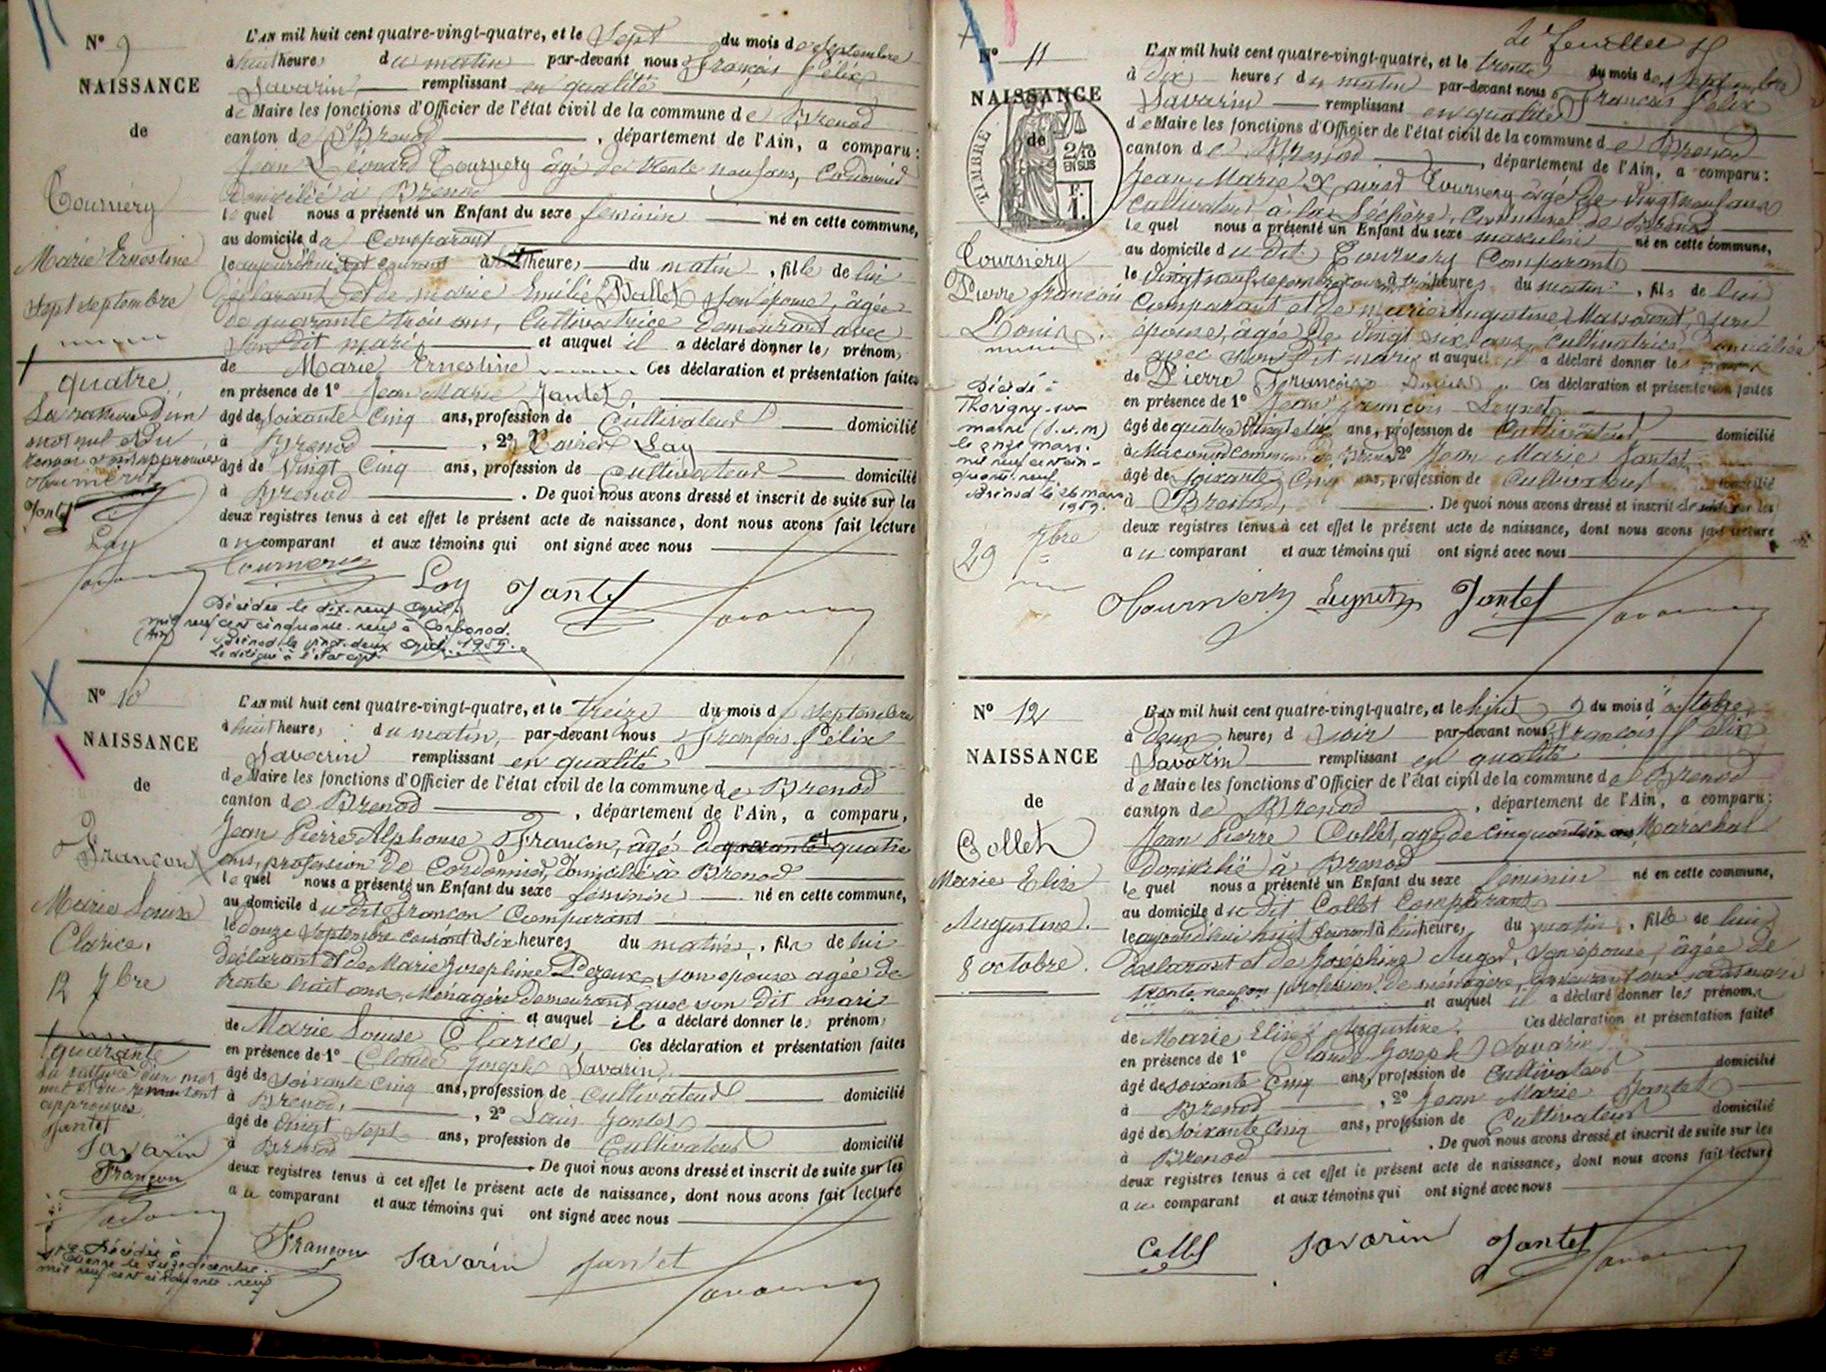 N° 9
NAISSANCE
de
Tournery
Marie Ernestine
sept septembre
quatre
La rature d'un
mot nul et du
renvoi sont approuvés
Tournery
Jantet
Lay
L'AN mil huit cent quatre-vingt-quatre, et le sept du mois de septembre
à huit heures du matin par-devant nous François Félix
Savarin remplissant en qualité
de Maire les fonctions d'Officier de l'état civil de la commune de Brenod
canton de Brenod, département de l'Ain, a comparu:
Jean Léonard Tournery âgé de trente neuf ans, Cordonnier
domicilié à Brenod
lequel nous a présenté un Enfant du sexe féminin né en cette commune,
au domicile du Comparant
le aujourd'hui sept courant à heures du matin, fille de lui
déclarant et de marie Emélie Ballet son épouse, âgée
de quarante trois ans, Cultivatrice demeurant avec
son dit mari et auquel il a déclaré donner les prénoms
de Marie Ernestine Ces déclaration et présentation faites
en présence de 1° Jean Marie Jantet,
âgé de soixante cinq ans, profession de Cultivateur domicilié
à Brenod, 2° Lay
âgé de vingt cinq ans, profession de cultivateur domicilié
à Brenod. De quoi nous avons dressé et inscrit de suite sur les
deux registres tenus à cet effet le présent acte de naissance, dont nous avons fait lecture
au comparant et aux témoins qui ont signé avec nous
Tournery Lay Jantet Savarin
Décédée le dix-neuf avril
mil neuf cent cinquante-neuf à Corbonod.
(Ain) Brénod le vingt-deux avril 1959.
Le délégué à l'état civil
N° 10
NAISSANCE
de
Françon
Marie Louise
Clarice.
12 7bre
quarante
la rature d'un mot
nul et du renvoi sont
approuvés
Jantet
Savarin
Françon
Savarin
Décédée à
Etienne le décembre
mil neuf cent cinquante-neuf
L'AN mil huit cent quatre-vingt-quatre, et le treize du mois de septembre
à huit heures du matin, par-devant nous François Félix
Savarin remplissant en qualité
de Maire les fonctions d'Officier de l'état civil de la commune de Brenod
canton de Brenod, département de l'Ain, a comparu,
Jean Pierre Alphonse Françon, âgé de quarante quatre
ans, profession de Cordonnier, domicilié à Brenod
lequel nous a présenté un Enfant du sexe féminin né en cette commune,
au domicile du dit Françon Comparant
le douze septembre courant à six heures du matin, fille de lui
déclarant et de Marie Josephine Pezeux son épouse âgée de
trente huit ans, Ménagère demeurant avec son dit mari
et auquel il a déclaré donner les prénoms
de Marie Louise Clarice, Ces déclaration et présentation faites
en présence de 1° Claude Joseph Savarin,
âgé de soixante cinq ans, profession de cultivateur domicilié
à Brenod, 2° Louis Jantet
âgé de vingt sept ans, profession de Cultivateur domicilié
à Brenod De quoi nous avons dressé et inscrit de suite sur les
deux registres tenus à cet effet le présent acte de naissance, dont nous avons fait lecture
au comparant et aux témoins qui ont signé avec nous
Françon Savarin Jantet Savarin
2e feuillet
N° 11
NAISSANCE
de
TIMBRE
2/10
EN SUS
F.
1.
Tournery
Pierre françois
Louis
Décédé à
Thorigny-sur
marne (S.&M)
le onze mars
mil neuf cent cin-
quante-neuf
Brénod le 26 mars
1959.
29 7bre
L'AN mil huit cent quatre-vingt-quatre, et le trente du mois de septembre
à dix heures du matin par-devant nous François Félix
Savarin remplissant en qualité
de Maire les fonctions d'Officier de l'état civil de la commune de Brenod
canton de Brenod, département de l'Ain, a comparu:
Jean Marie Tournery âgé de vingt neuf ans
cultivateur à la Séchère, Commune de Brenod
lequel nous a présenté un Enfant du sexe masculin né en cette commune,
au domicile du dit Tournery Comparant
le vingt neuf septembre courant à heures du matin, fils de lui
Comparant et de marie Augustine Massonnet, son
épouse, âgée de vingt six ans, cultivatrice domiciliée
avec son dit mari et auquel il a déclaré donner les prénoms
de Pierre François Louis Ces déclaration et présentation faites
en présence de 1° Jean françois Leynet
âgé de quatre vingt ans, profession de Cultivateur domicilié
à Macconod commune de Brenod 2° Jean Marie Jantet
âgé de soixante cinq ans, profession de Cultivateur domicilié
à Brenod, De quoi nous avons dressé et inscrit de suite sur les
deux registres tenus à cet effet le présent acte de naissance, dont nous avons fait lecture
au comparant et aux témoins qui ont signé avec nous
Tournery Leynet Jantet Savarin
N° 12
NAISSANCE
de
Collet
Marie Elise
Augustine.
8 octobre.
L'AN mil huit cent quatre-vingt-quatre, et le huit du mois d'octobre
à deux heures d soir par-devant nous François Félix
Savarin remplissant en qualité
de Maire les fonctions d'Officier de l'état civil de la commune de Brenod
canton de Brenod, département de l'Ain, a comparu:
Jean Pierre Collet, âgé de cinquante ans, Maréchal
domicilié à Brenod
lequel nous a présenté un Enfant du sexe féminin né en cette commune,
au domicile du dit Collet Comparant
le aujourd'hui huit courant à huit heures du matin, fille de lui
déclarant et de Joséphine Auger, son épouse, âgée de
trente neuf ans profession de ménagère, demeurant avec son dit mari
et auquel il a déclaré donner les prénoms
de Marie Elise Augustine. Ces déclaration et présentation faites
en présence de 1° Claude Joseph Savarin
âgé de soixante cinq ans, profession de Cultivateur domicilié
à Brenod, 2° Jean Marie Jantet
âgé de soixante cinq ans, profession de Cultivateur domicilié
à Brenod. De quoi nous avons dressé et inscrit de suite sur les
deux registres tenus à cet effet le présent acte de naissance, dont nous avons fait lecture
au comparant et aux témoins qui ont signé avec nous
Collet Savarin Jantet Savarin